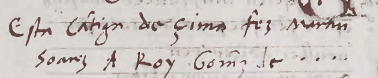 Esta Cãtiga de çima fez martin
Soarez A Roy Gom͂z de .....